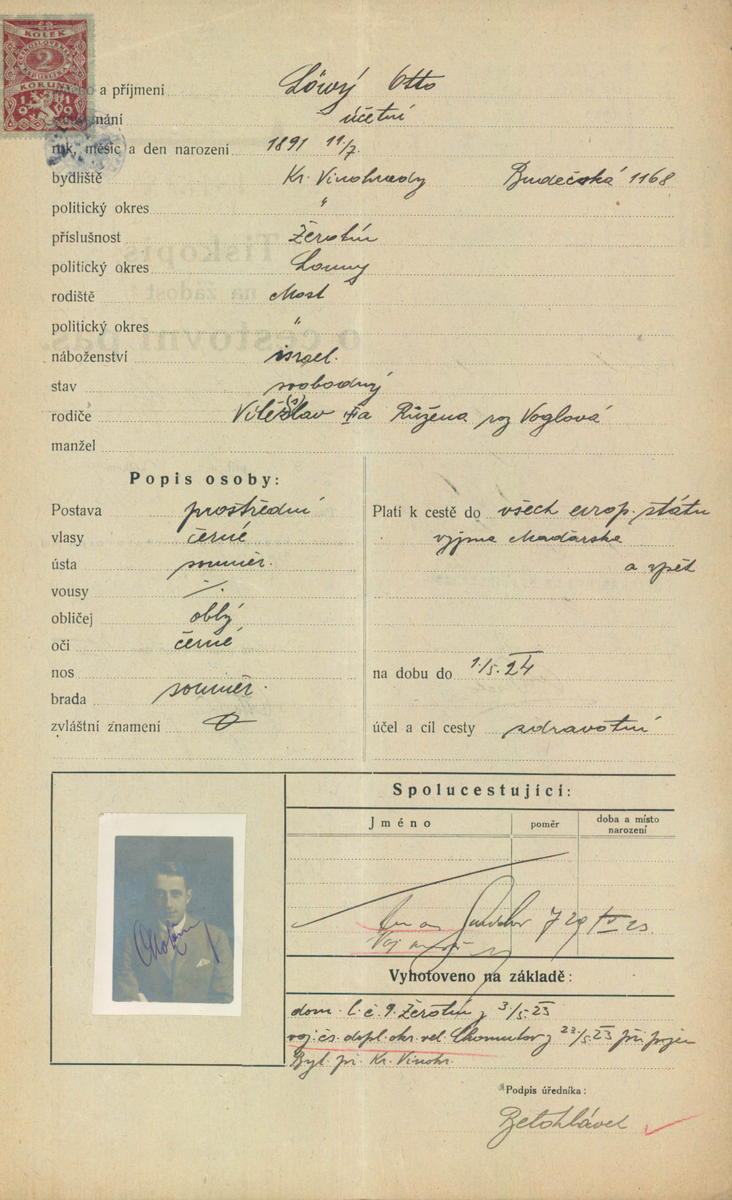 KOLEK
ČESKOSLOVENSKÁ
REPUBLIKA
2
KORUNY
1919
a příjmení Löwý Otto
účetní
rok, měsíc a den narození 1891 11/7.
bydliště Kr. Vinohrady Budečská 1168
politický okres "
příslušnost Žerotín
politický okres Louny
rodiště Most
politický okres "
náboženství israel.
stav svobodný
rodiče Vítězslav a Růžena roz Voglová
manžel
Popis osoby:
Postava prostřední
vlasy černé
ústa souměr.
vousy ·/·
obličej oblý
oči černé
nos
brada souměr.
zvláštní znamení
Platí k cestě do všech evrop. států
vyjma Maďarska
a zpět
na dobu do 1/5. 24
účel a cíl cesty zdravotní
Spolucestující:
Jméno poměr doba a místo narození
29 IV 23.
Vyhotoveno na základě:
dom. l. č. 9. Žerotín z 3/5. 23
voj. čs. dopl. okr. vel. Chomutov z 23/5. 23
Byt. př. Kr. Vinohr.
Podpis úředníka:
Bělohlávek